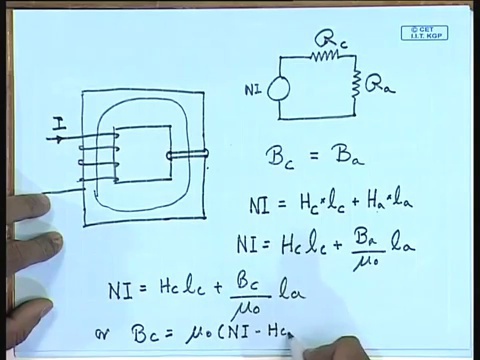 © CET
I.I.T. KGP
R_c
NI
R_a
I
B_c = B_a
NI = H_c * l_c + H_a * l_a
NI = H_c l_c + B_a/μ_0 l_a
NI = H_c l_c + B_c/μ_0 l_a
or B_c = μ_0 (NI - H_c